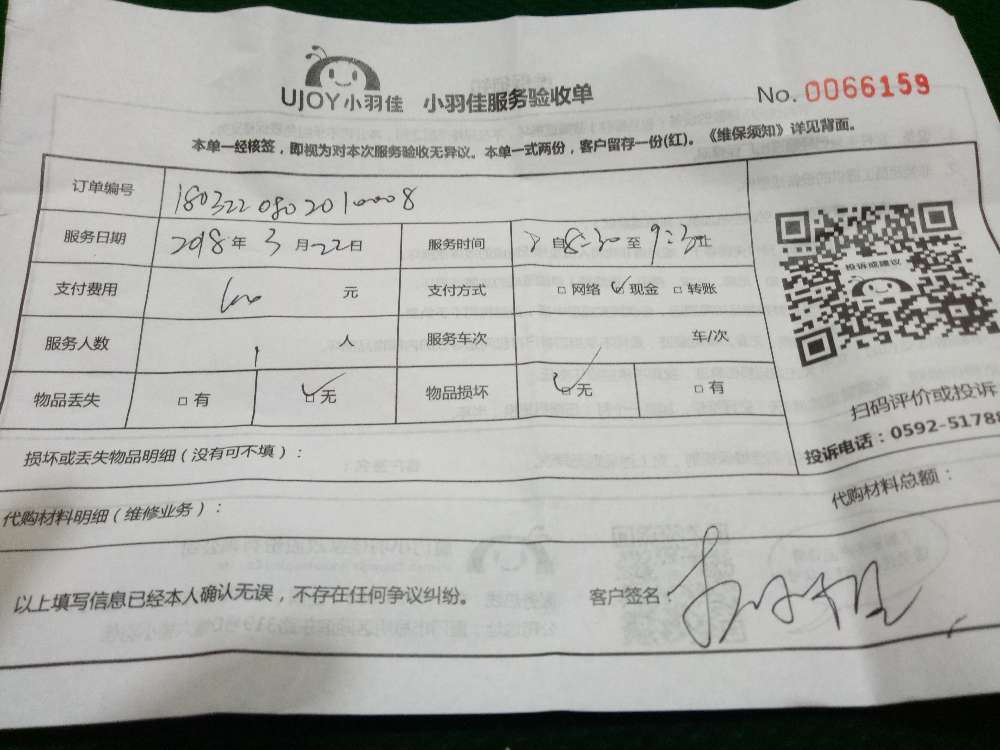 UJOY小羽佳 小羽佳服务验收单 No. 0066159
本单一经核签，即视为对本次服务验收无异议。本单一式两份，客户留存一份(红)。《维保须知》详见背面。
订单编号 1803220802010008
服务日期 2018年 3月 22日 服务时间 自 8:30 至 9:30 止
支付费用 元 支付方式 □ 网络 ☑ 现金 □ 转账
服务人数 1 人 服务车次 车/次
物品丢失 □ 有 ☑ 无 物品损坏 ☑ 无 □ 有
损坏或丢失物品明细（没有可不填）：
代购材料明细（维修业务）： 代购材料总额：
以上填写信息已经本人确认无误，不存在任何争议纠纷。 客户签名：
投诉或建议
扫码评价或投诉
投诉电话：0592-51788